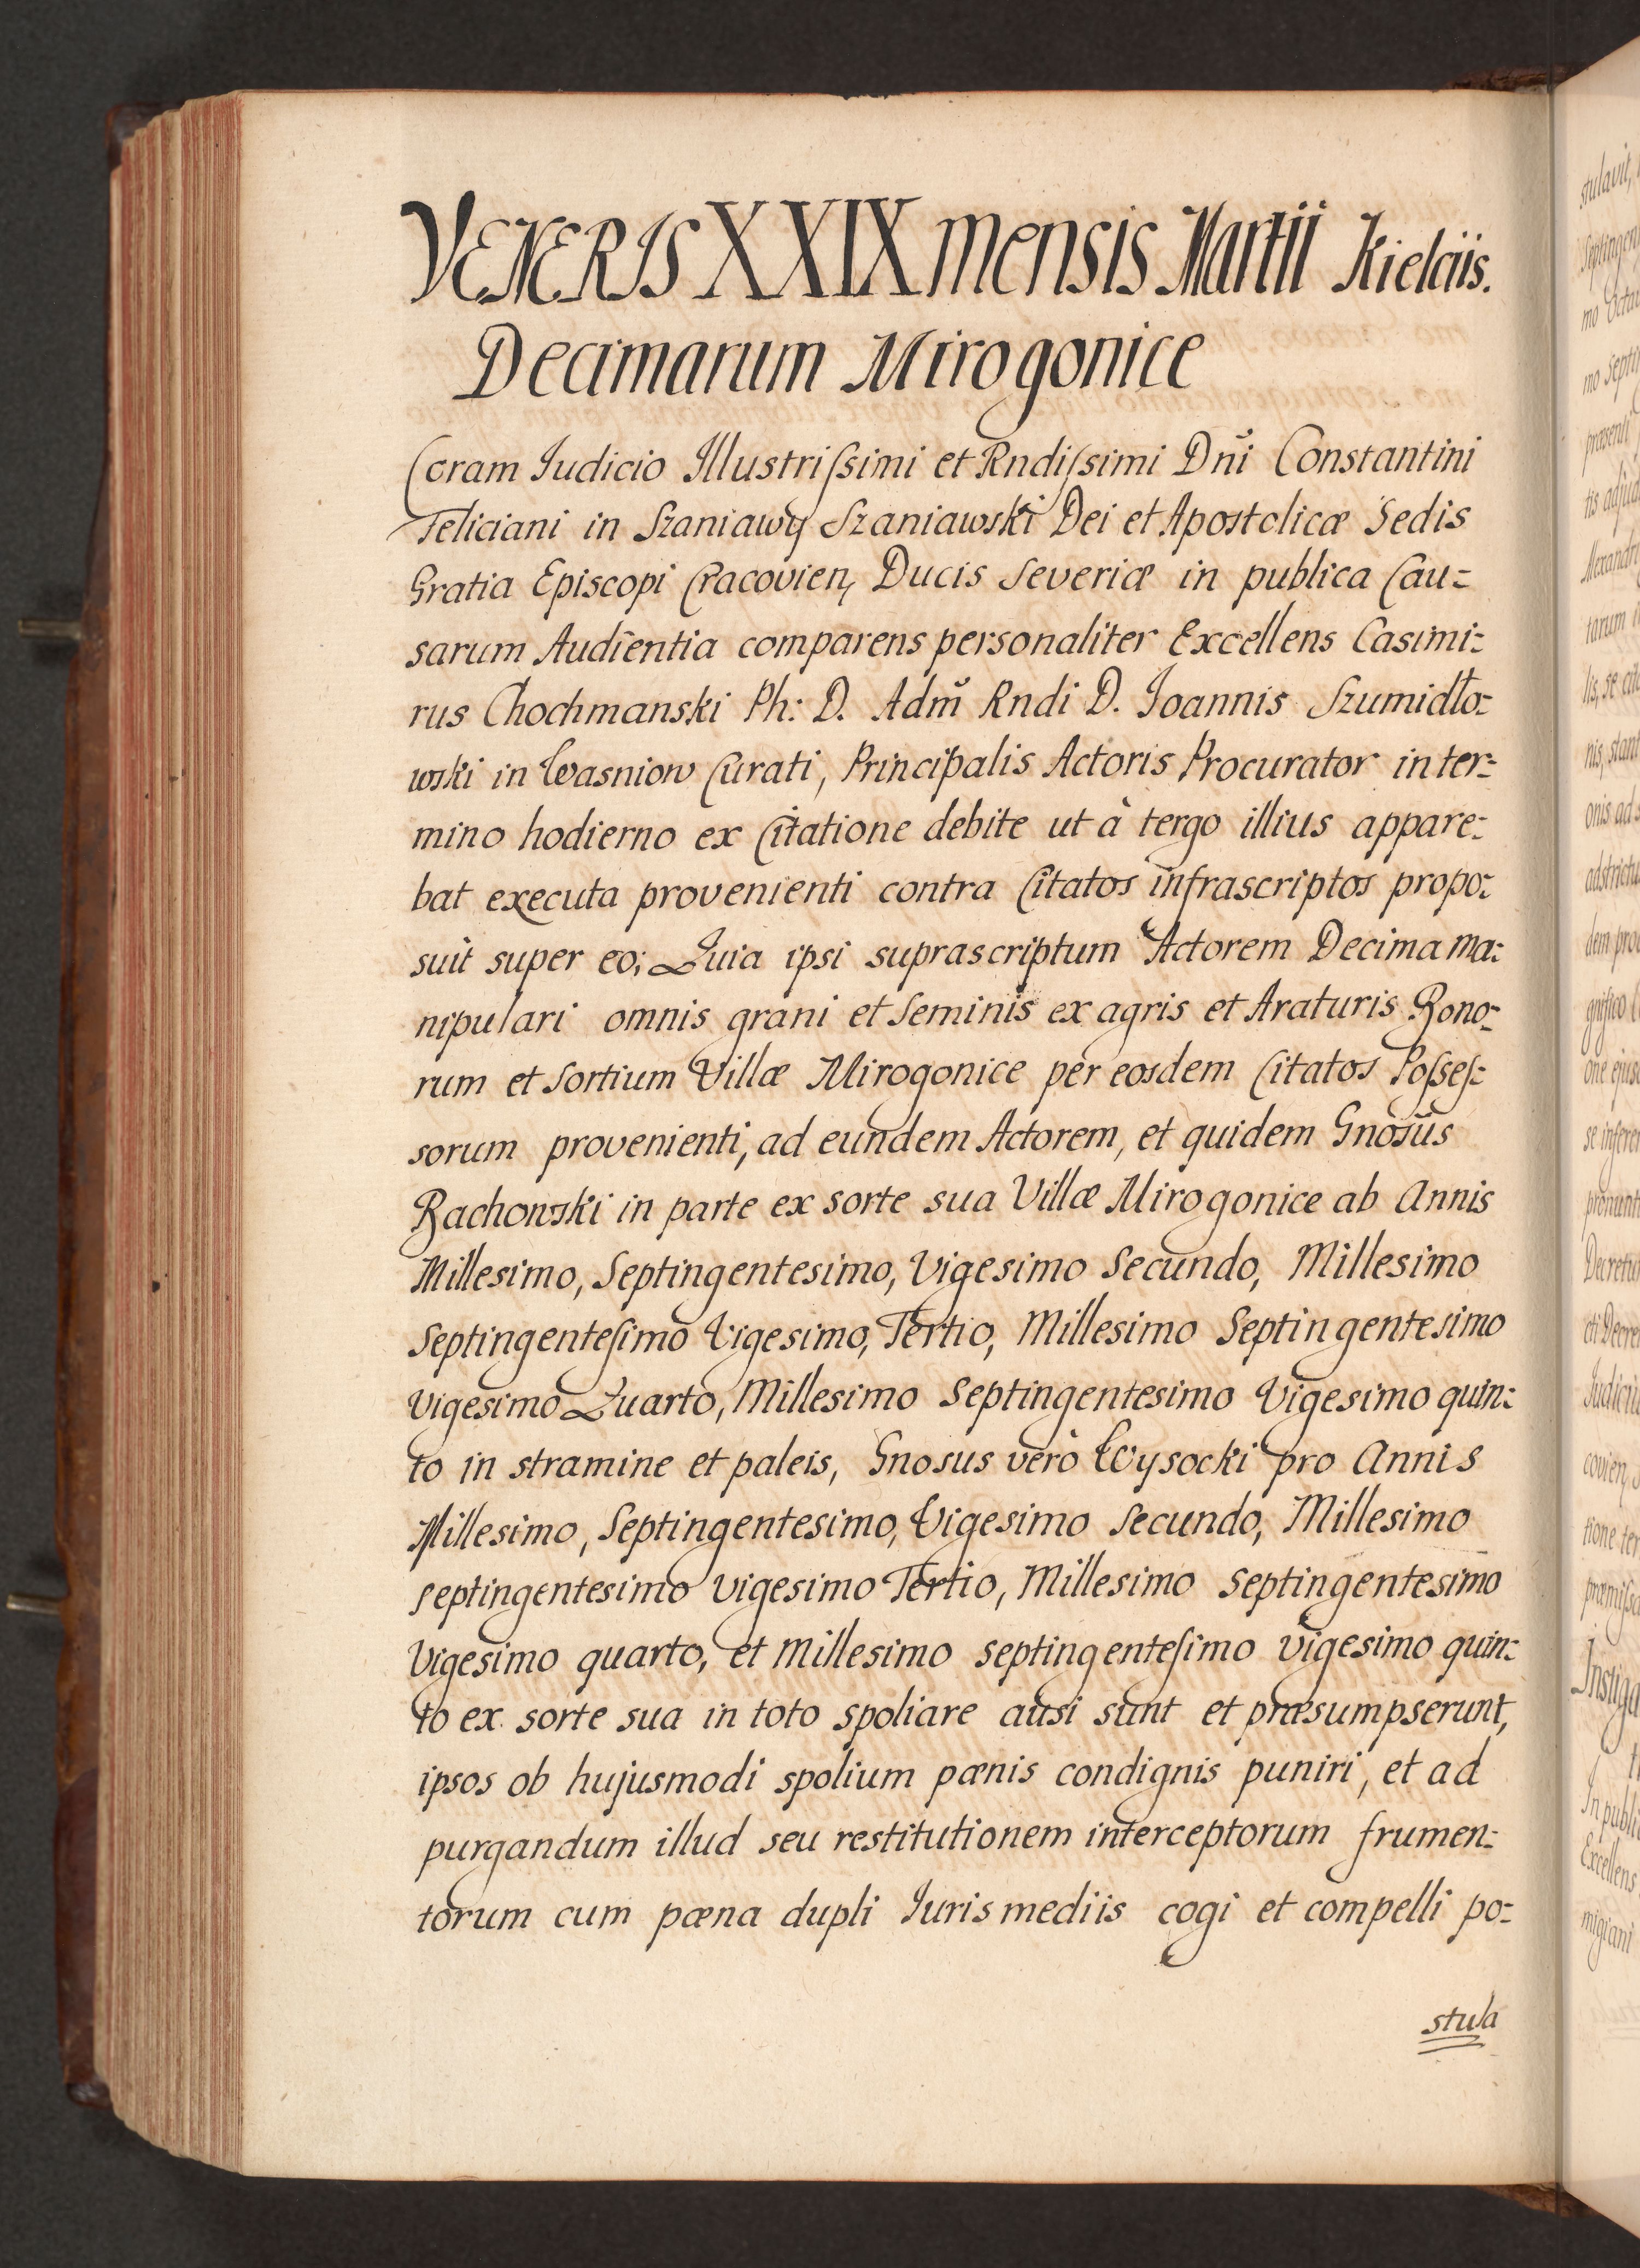 VENERIS XXIX mensis Martii Kielciis.
Decimarum Mirogonice
Coram Iudicio Illustriſsimi et Rndiſsimi Dñi Constantini
Feliciani in Szaniawy Szaniawski Dei et Apostolicæ Sedis
Gratia Episcopi Cracovien, Ducis Severiæ in publica Cau=
sarum Audientia comparens personaliter Excellens Casimi=
rus Chochmanski Ph: D. Adm̃ Rndi D. Ioannis Szumidło=
wski in Wasniow Curati, Principalis Actoris Procurator in ter=
mino hodierno ex Citatione debite ut à tergo illius appare=
bat executa provenienti contra Citatos infrascriptos propo=
suit super eo; Quia ipsi suprascriptum Actorem Decima ma=
nipulari omnis grani et Seminis ex agris et Araturis Bono=
rum et Sortium Villæ Mirogonice per eosdem Citatos Poſseſ=
sorum provenienti, ad eundem Actorem, et quidem Gnosus
Bachowski in parte ex sorte sua Villæ Mirogonice ab Annis
Millesimo, Septingentesimo, Vigesimo Secundo, Millesimo
Septingenteſimo Vigesimo, Tertio, Millesimo Septingentesimo
vigesimo Quarto, Millesimo Septingentesimo Vigesimo quin=
to in stramine et paleis, Gnosus verò Wysocki pro Annis
Millesimo, Septingentesimo, Vigesimo Secundo, Millesimo
septingentesimo vigesimo Tertio, Millesimo Septingentesimo
Vigesimo quarto, et Millesimo septingenteſimo vigesimo quin=
to ex sorte sua in toto spoliare ausi sunt et præsumpserunt,
ipsos ob hujusmodi spolium pænis condignis puniri, et ad
purgandum illud seu restitutionem interceptorum frumen=
torum cum pæna dupli Iuris mediis cogi et compelli po=
stula